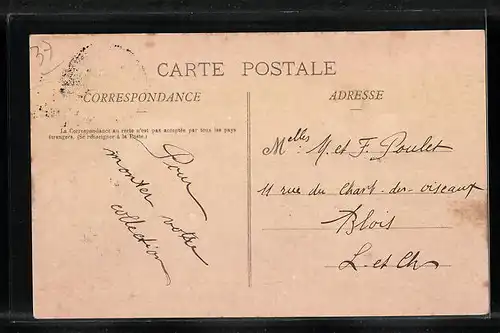 37
CARTE POSTALE
CORRESPONDANCE
La Correspondance au recto n'est pas acceptée par tous les pays
étrangers. (Se renseigner à la Poste.)
Pour
monter votre
collection
ADRESSE
Melles Y. et F. Poulet
11 rue du Chant-des-oiseaux
Blois
L. et Ch